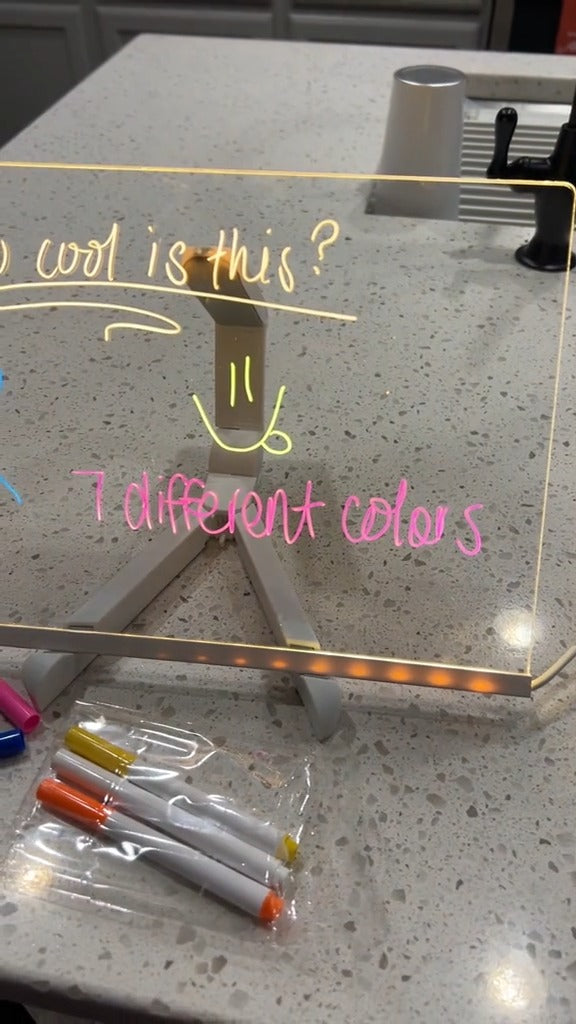 cool is this?
7 different colors